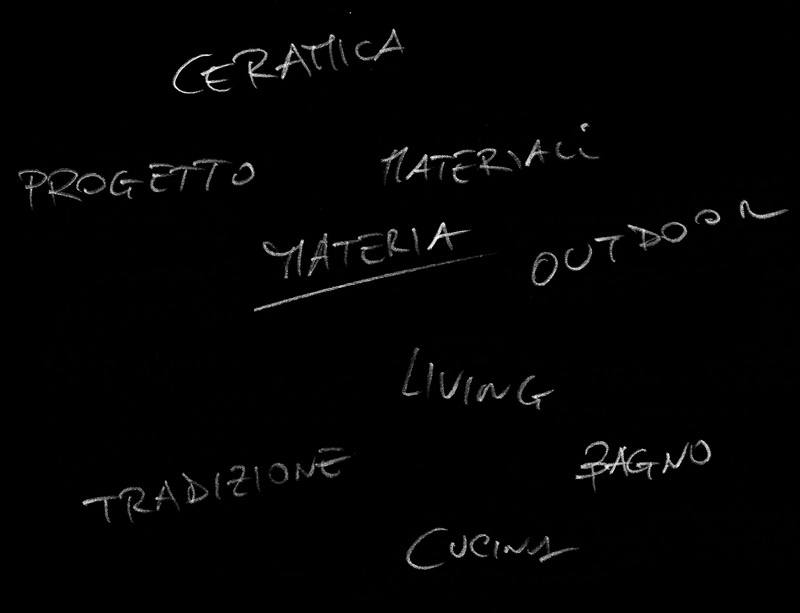 CERAMICA
PROGETTO
MATERIALi
MATERIA
OUTDOOR
LIVING
TRADIZIONE
BAGNO
CUCINA